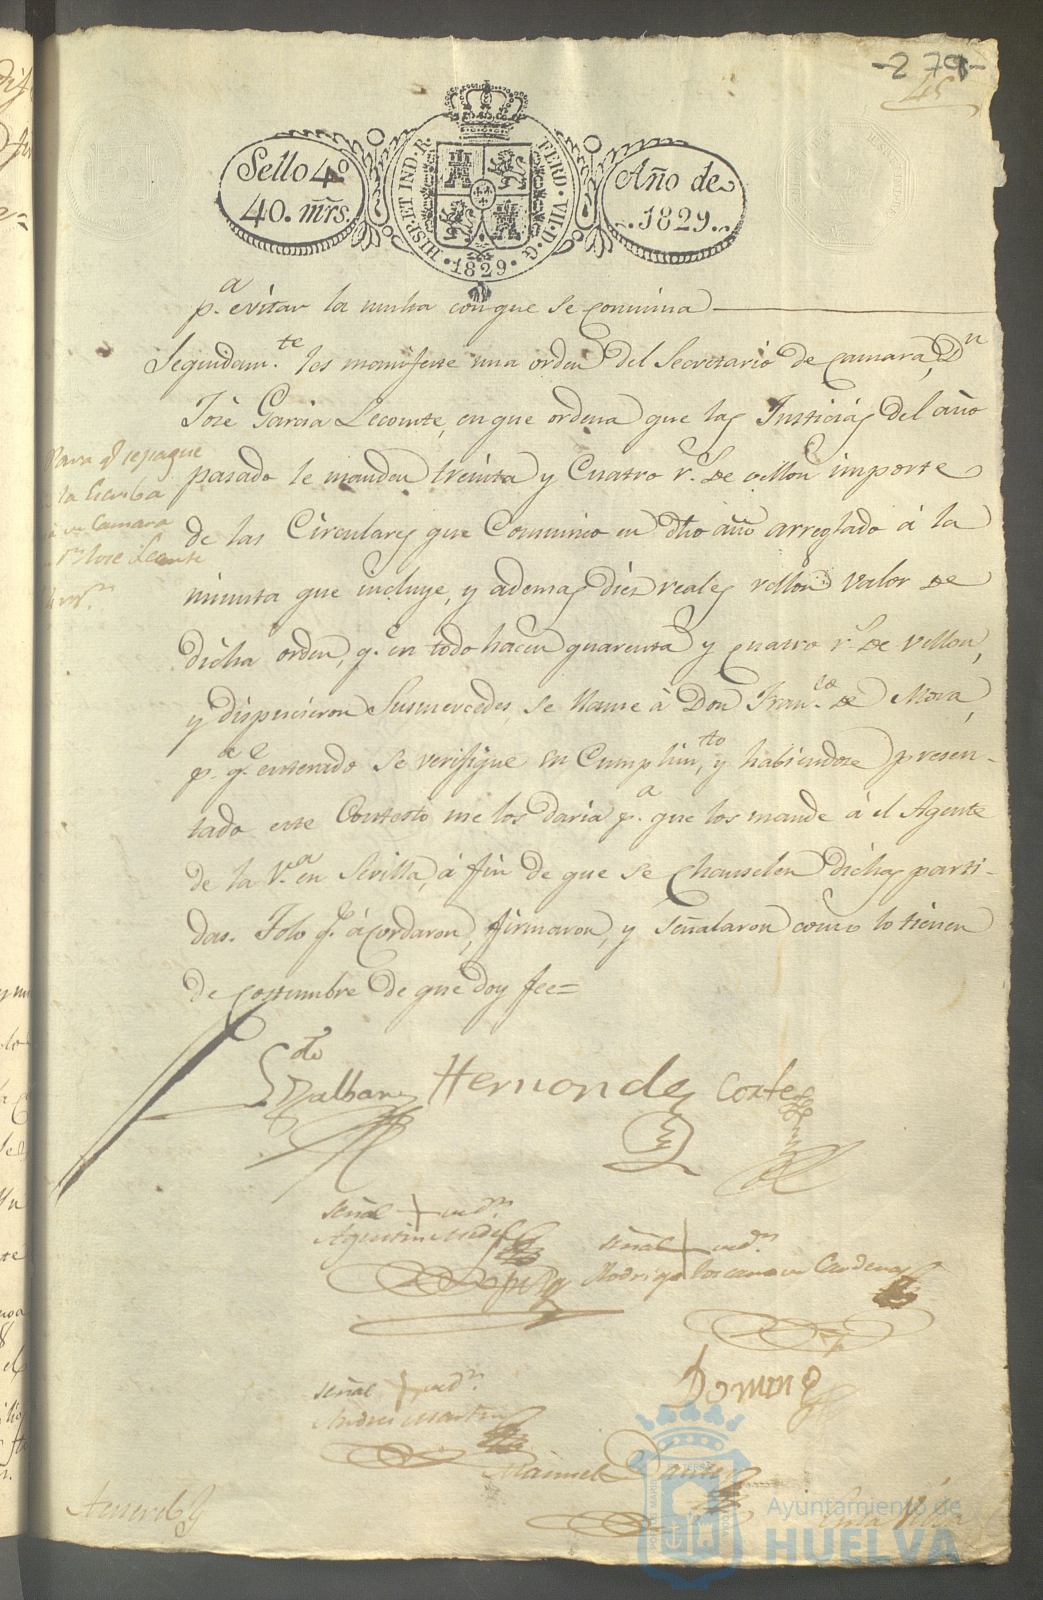 -279-
45
Sello 4º
40. mrs.
HISP. ET IND. R.
FERD. VII. D. G.
1829
Año de
1829
p.ª evitar la multa con que se conmina
Seguidam.te les manifeste una orden del Secretario de Camara, Dn
José Garcia Lecomte, en que ordena que las Justicias del año
pasado le manden treinta y Cuatro r.s de vellon importe
de las Circulares que Comunico en dho año arreglado á la
minuta que incluye, y ademas diez reales vellon valor de
dicha orden, q.e en todo hacen quarenta y cuatro r.s de vellon,
y dispusieron Susmercedes, se llame á Don Fran.co de Mora,
p.ª q.e enterado se verifique su Cumplim.to, y habiendose presen-
tado este Contesto me los daria p.ª que los mande á el Agente
de la V.ª en Sevilla, á fin de que se chanselen dichas parti-
das. Asi lo acordaron, firmaron, y señalaron como lo tienen
de costumbre de que doy fee=
Para q.e se pague
la Escriba
de Camara
Dn Jose Lecomte
Hernandez Cortes
señal + de Dn
Agustin
señal + de Dn
Rodrigo Toscano de Cardenas
señal + de Dn
Andres Martin
Doming
Manuel
Acuerdo
En la Villa
Ayuntamiento de
HUELVA